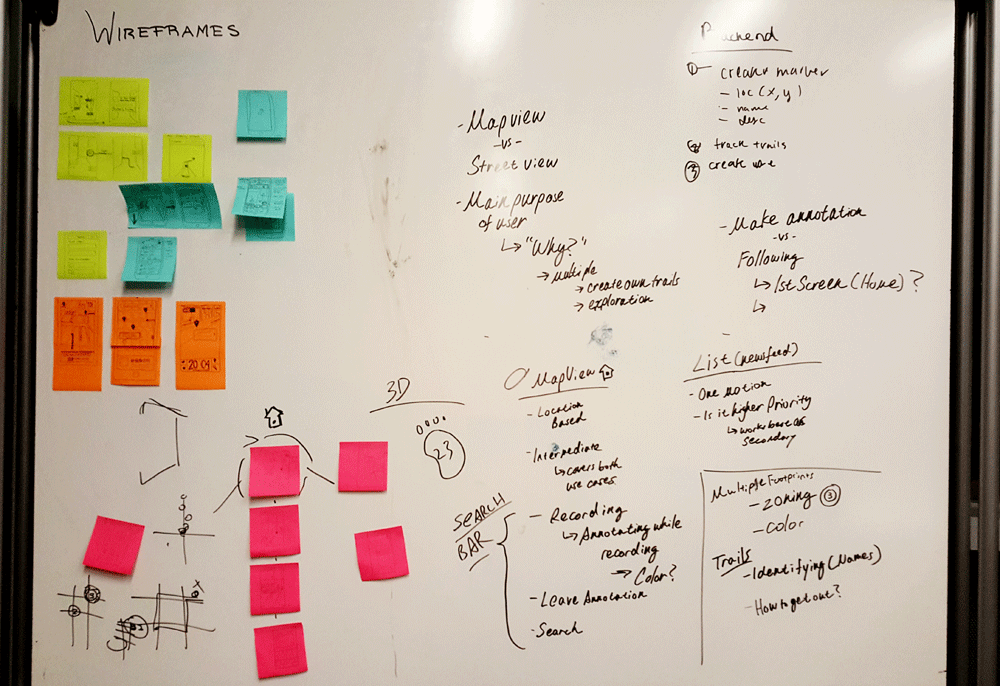 WIREFRAMES
20 04
3D
23
- Mapview
-vs-
Street view
- Main purpose
of user
↳ "Why?"
→ multiple
→ create own trails
→ exploration
MapView
- Location
Based
- Intermediate
↳ covers both
use cases
SEARCH
BAR
- Recording
↳ Annotating while
recording
→ Color?
- Leave Annotation
- Search
Backend
① create marker
- loc (x, y)
- name
- desc
② track trails
③ create
- Make annotation
-vs-
Following
↳ 1st Screen (Home) ?
↳
List (newsfeed)
- One motion
- Is it higher Priority
↳ works best as
secondary
Multiple Footprints
- zoning ③
- Color
Trails
- Identifying (Names)
- How to get out?